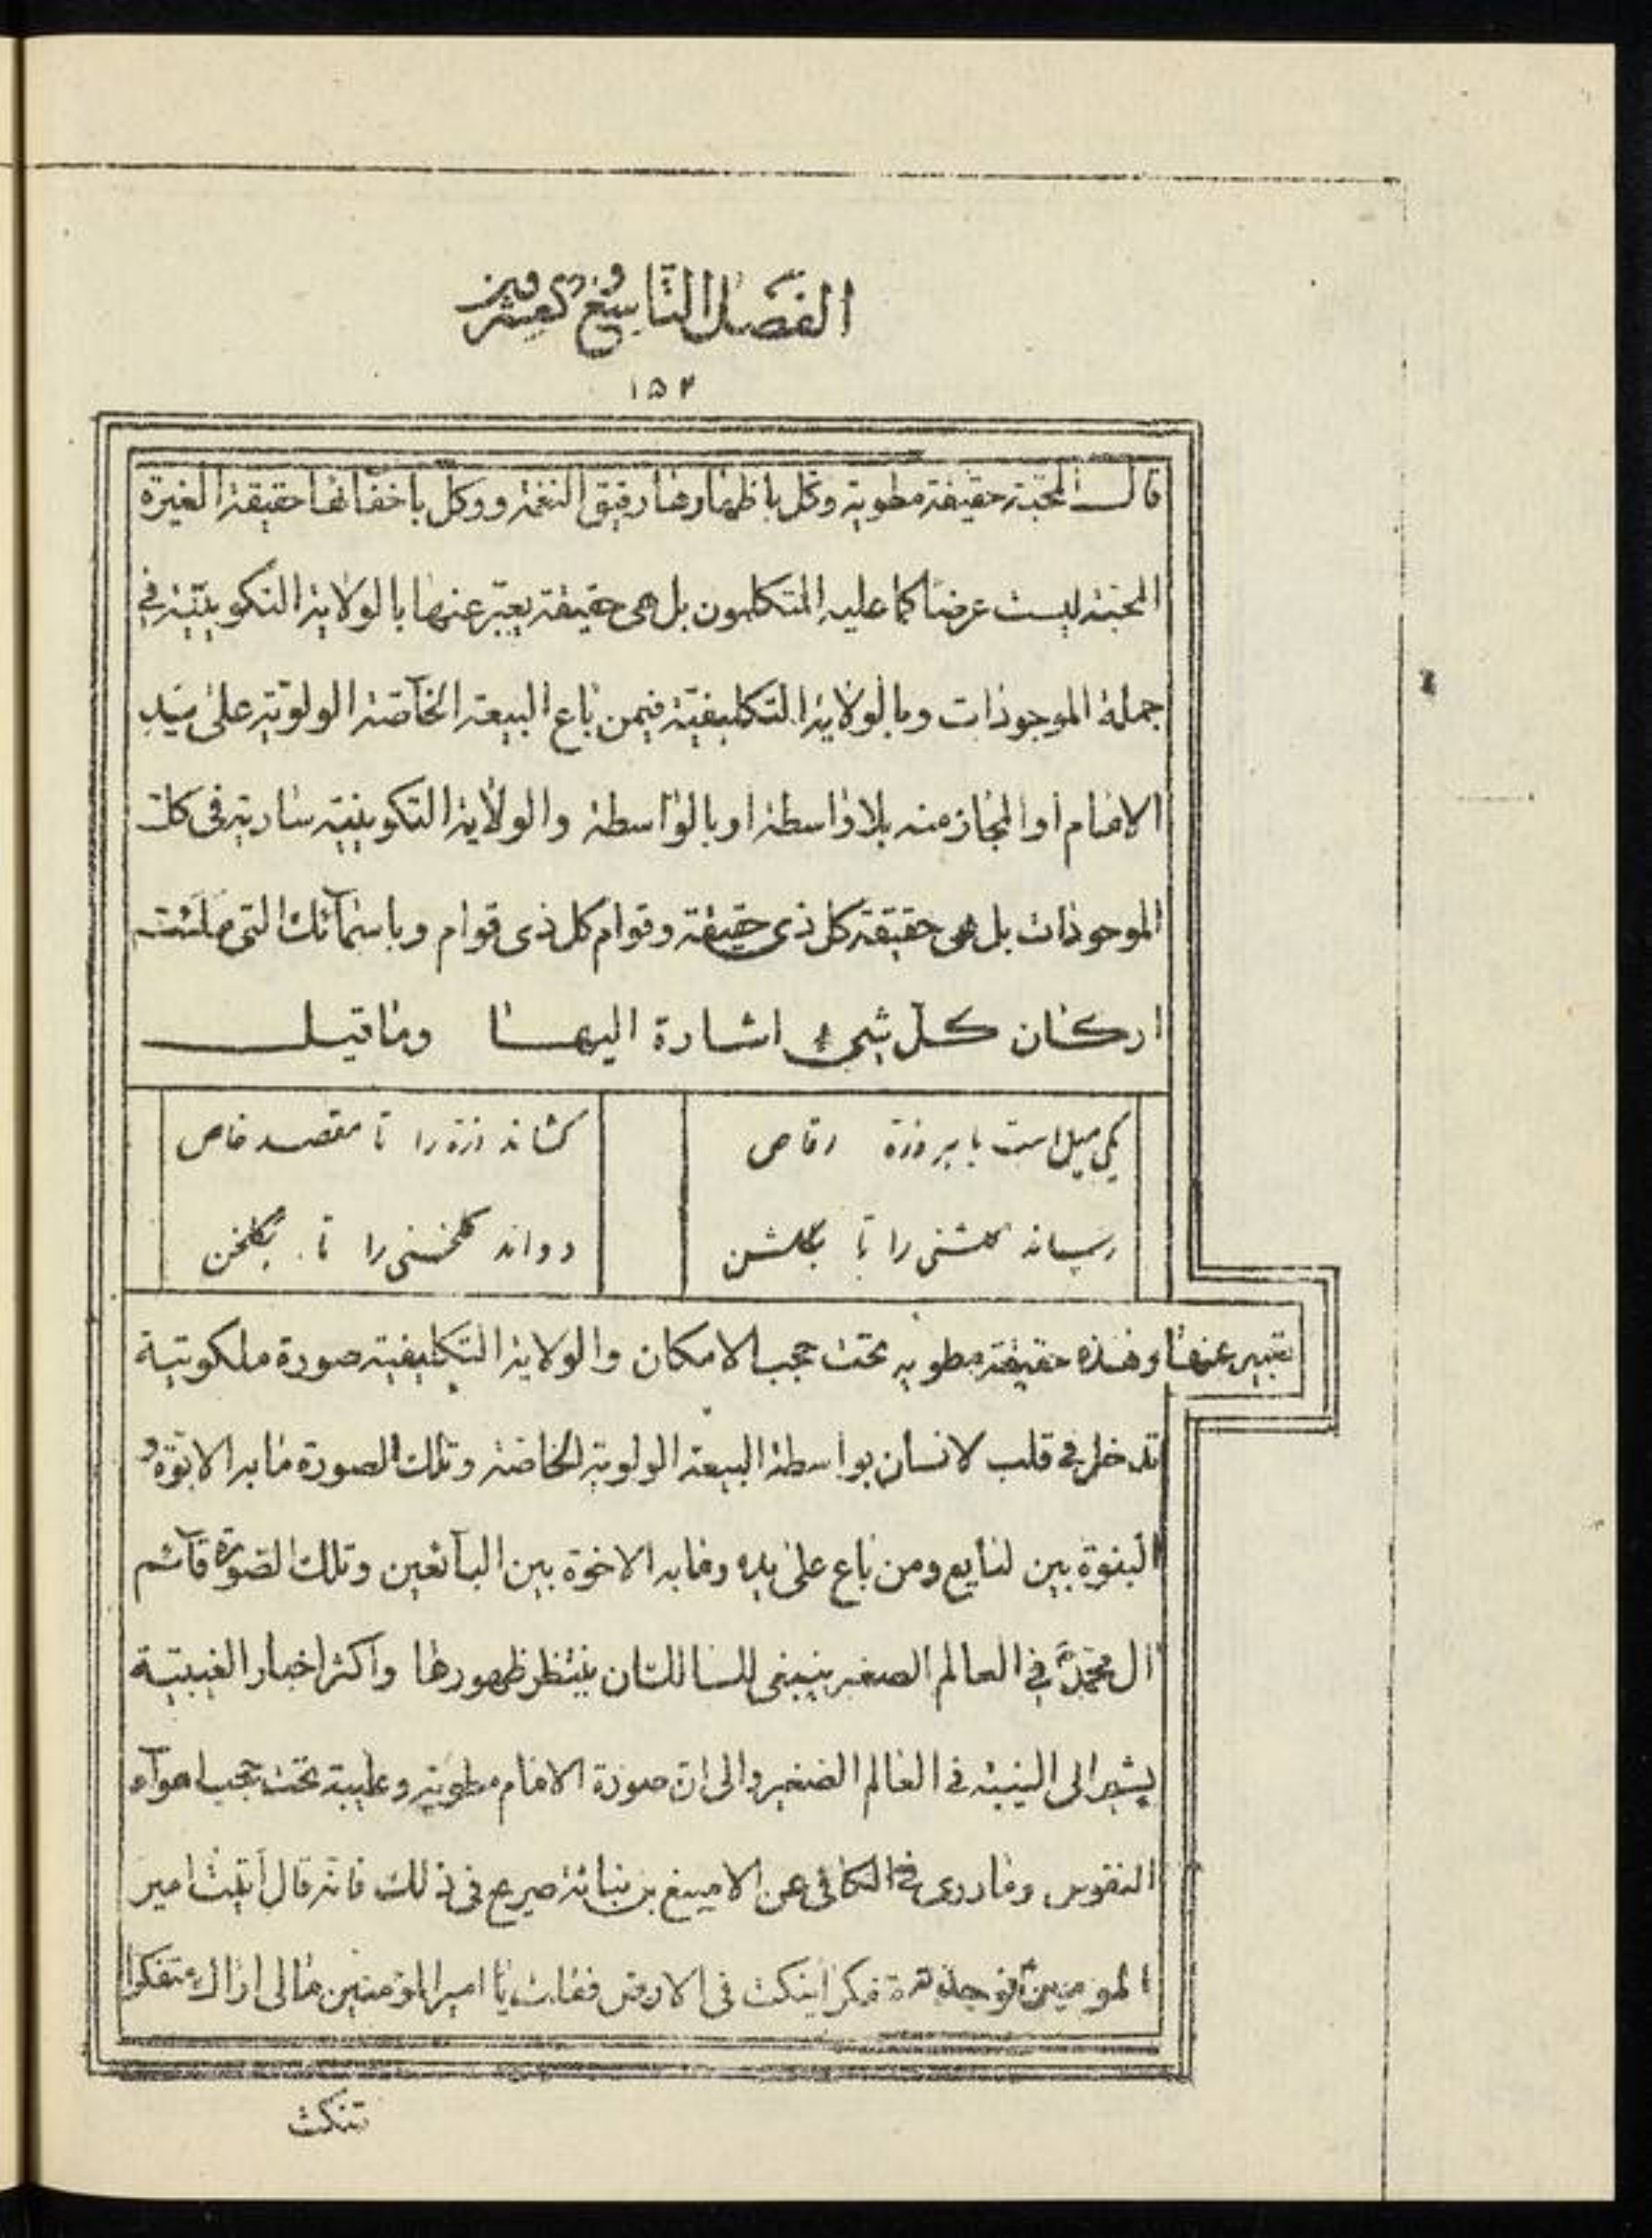 الفصل التاسع و عشرين
۱۵۲
قال المحبة حقيقة مطوية وكل باظهارها رقيق النغمة ووكل باخفائها حقيقة الغيرة
المحبة ليست عرضا كما عليه المتكلمون بل هى حقيقة يعبر عنها بالولاية التكوينية في
جملة الموجودات وبالولاية التكليفية فيمن باع البيعة الخاصة الولوية على يد
الامام او المجاز منه بلا واسطة او بالواسطة والولاية التكوينية سارية فى كل
الموجودات بل هى حقيقة كل ذى حقيقة وقوام كل ذى قوام وباسمآئك التى ملئت
اركان كل شيئ اشارة اليها وما قيل
يكى ميل است با هر ذرة رقاص كشاند ذرة را تا مقصد خاص
رساند گلشنى را تا بگلشن دواند گلخنى را تا بگلخن
تعبير عنها وهذه حقيقة مطوية تحت حجب الامكان والولاية التكليفية صورة ملكوتية
تدخل فى قلب لانسان بواسطة البيعة الولوية الخاصة وتلك الصورة ما به الابوة و
البنوة بين لبايع ومن باع على يده وما به الاخوة بين البآئعين وتلك الصورة قآئم
ال محمد في العالم الصغير ينبغى للسالك ان ينتظر ظهورها واكثر اخبار الغيبية
يشير الى الغيبة فى العالم الصغير والى ان صورة الامام مطوية وغايبة تحت حجب اهوآء
النفوس وما روى فى الكافى عن الاصبغ بن نباتة صريح فى ذلك فانه قال اتيت امير
المومنين فوجدته متفكرا ينكت فى الارض فقلت يا امير المؤمنين مالى اراك متفكرا
تنكت